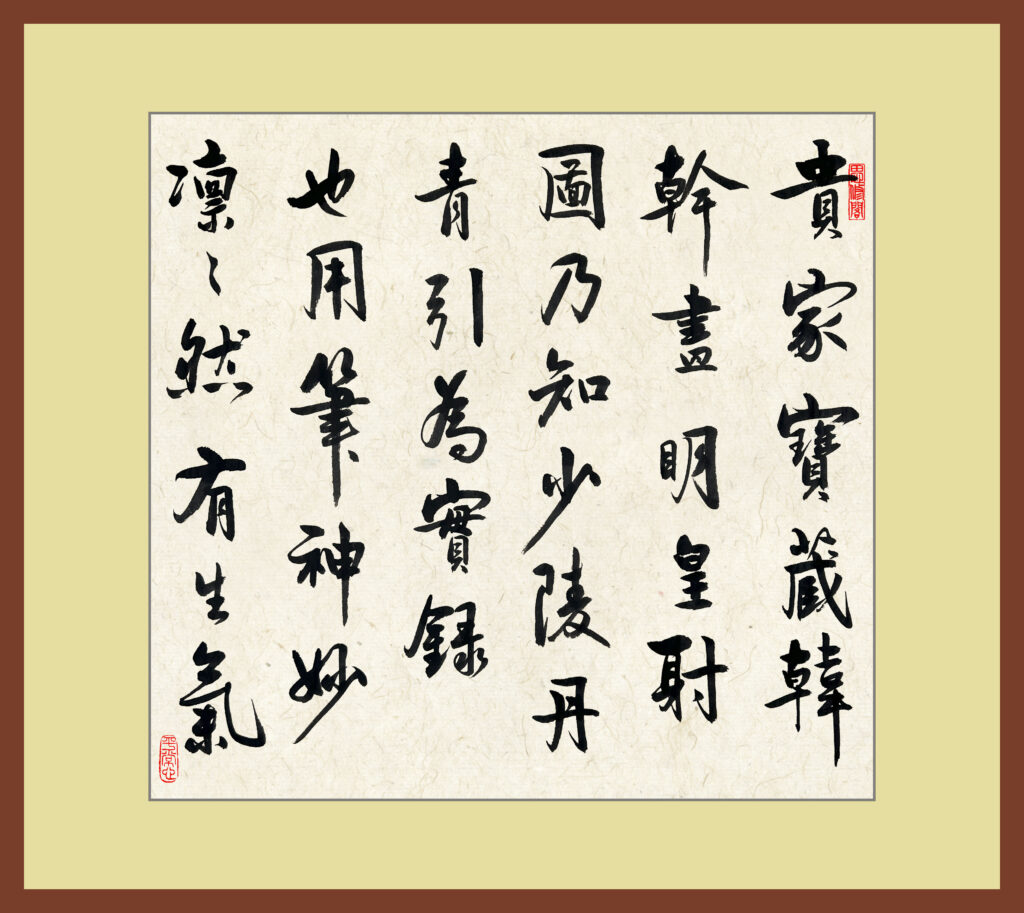 貴家寶藏韓
幹畫明皇射
圖乃知少陵丹
青引為實錄
也用筆神妙
凜々然有生氣
平常心